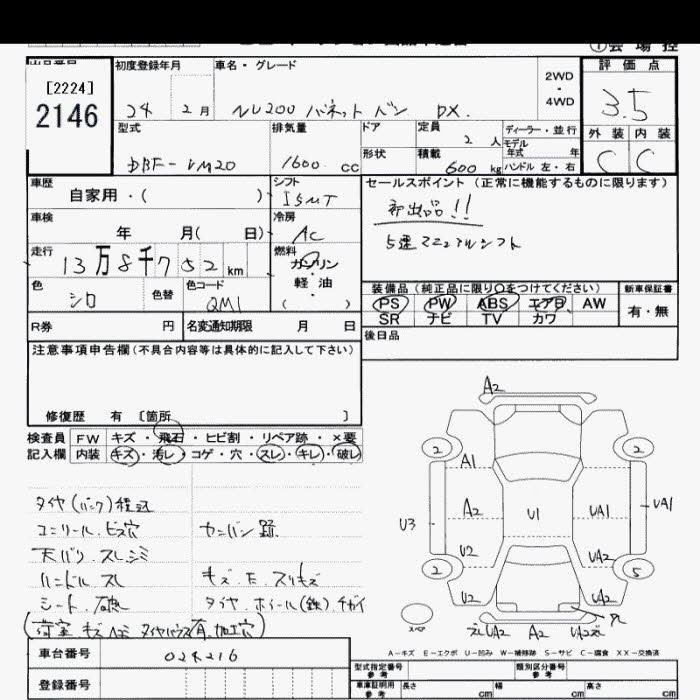 会場控
出品番号 初度登録年月 車名・グレード 2WD・4WD 評価点
[2224]
2146
24 2月 NV200 バネットバン DX. 3.5
型式 排気量 ドア 定員 2人 ディーラー・並行 外装 内装
モデル年式 年
DBF-VM20 1600cc 形状 積載 600kg ハンドル 左・右 C C
車歴 シフト セールスポイント(正常に機能するものに限ります)
自家用・( ) I5MT
初出品!!
車検 冷房
年 月( 日) AC 5速マニュアルシフト
走行 燃料
13万8千752km ガソリン
軽・油
( )
色 色替 色コード 装備品(純正品に限り○をつけてください) 新車保証書
シロ QM1 PS PW ABS エアB AW 有・無
R券 円 名変通知期限 月 日 SR ナビ TV カワ
後日品
注意事項申告欄(不具合内容等は具体的に記入して下さい)
修復歴 有 〔箇所 〕
検査員 FW キズ・飛石・ヒビ割・リペア跡・×要
記入欄 内装 キズ・汚レ・コゲ・穴・スレ・キレ・破レ
タイヤ(パンク)積込
ユニリール.ビス穴 カンバン跡
天バリ.スレシミ
ハンドル スレ キズ.E.スリキズ
シート.破れ タイヤ.ホイール(鉄)チガイ
荷室 キズ ヘコミ タイヤハウス有.加工穴
A2
2 2
A1
A2 U1 UA1 UA1
U3
U2 UA2
2 5
U2 UA2
スペア UA2 A2 UA2
A-キズ E-エクボ U-凹み W-補修跡 S-サビ C-腐食 XX-交換済
車台番号 024216
型式指定番号 参考 類別区分番号 参考
登録番号
車庫証明用 参考 長さ cm 幅 cm 高さ cm